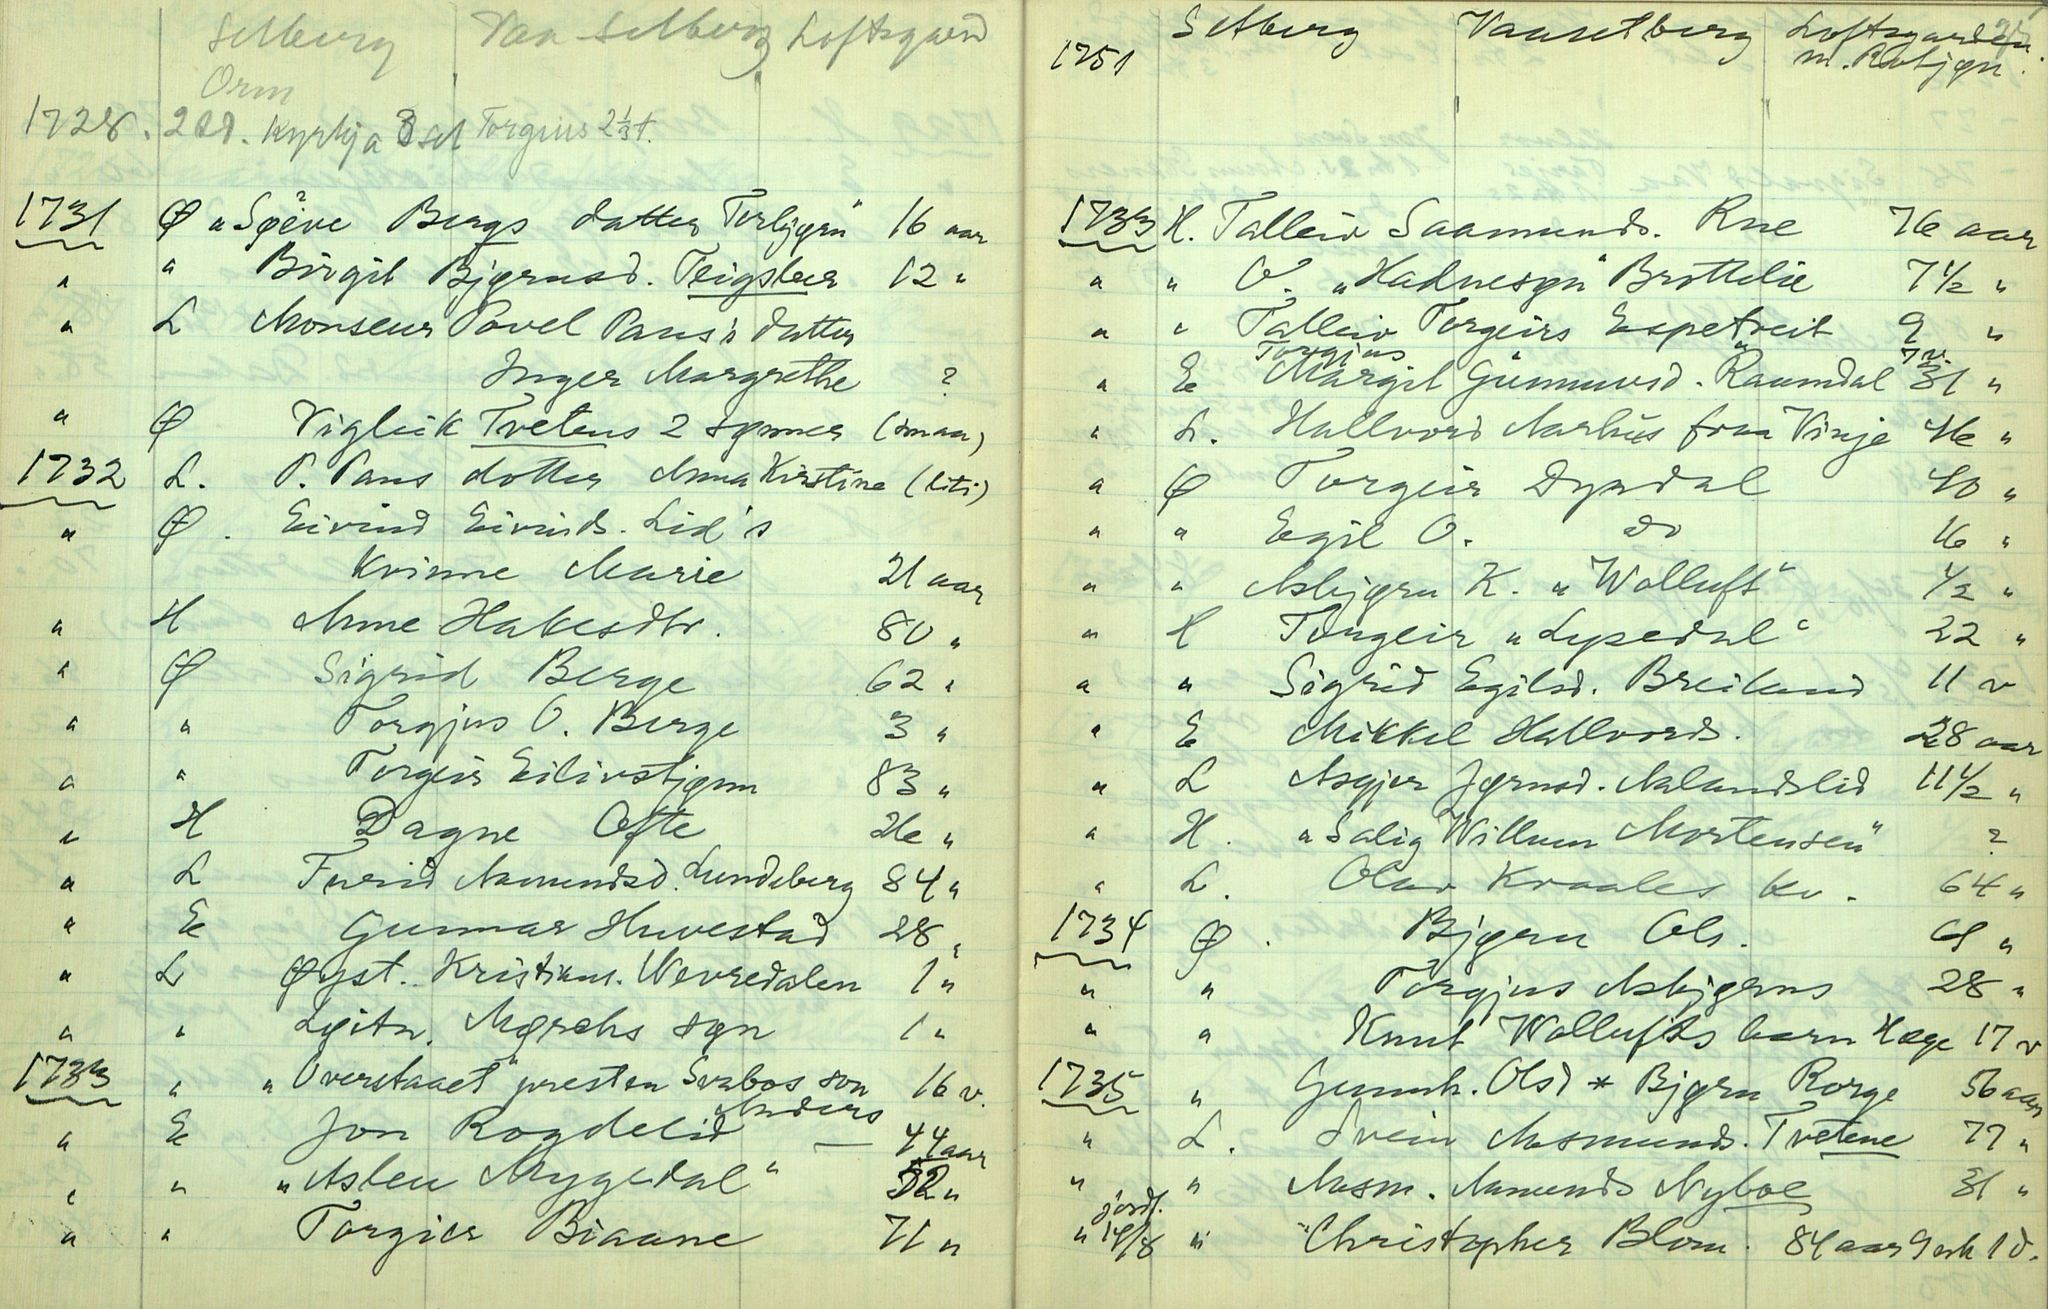 Selberg Vaa Selberg Loftsgaard
Orm
1728. 201. Kyrkja 3 sel Torgius 2 1/3 t.
1731 Ø „Spêve Bergs datter Torbjørn" 16 aar
" " Birgit Bjørnsd. Teigsber 12 "
" L Monseur Povel Paus's datter
Inger Margrethe ?
" Ø Vigleik Tvetens 2 sønner (smaa)
1732 L. P. Paus dotter Anna Kirstine (liti)
" Ø. Eivind Eivinds. Lid's
Kvinne Marie 21 aar
" H Anne Hakesdtr. 80 "
" Ø Sigrid Berge 62 "
" " Torgjus O. Berge 3 "
" " Torgeir Eilivstjønn 83 "
" H Dagne Ofte 26 "
" L Turid Aamundsd. Lundeberg 84 "
" E Gunnar Huvestad 28 "
" L Øyst. Kristians. Wevredalen 1 "
" " Løitn. Mørchs søn 1 "
1733 " „Overstaaet" presten Svabos søn 16 v.
Anders
" E Jon Rogdelid — 44 aar
" " „Asleu Mygedal" 52 "
" " Torgier Biaane 71 "
1751 Selberg Vaaselberg Loftsgarden
m. Rotjøn.
1733 H. Talleiv Saamunds. Rue 76 aar
" " O. „Hadnesøn" Brottelie 7 1/2 "
" " Talleiv Torgeirs Espetveit 9 "
Torgjus 7 v.
" E Margit Gunnuvsd. Raumdal 31 "
" L. Hallvord Aarhus fraa Vinje 46 "
" Ø Torgeir Dyrdal 40 "
" " Egil O. do 16 "
" " Asbjørn K. „Wolluft" 1/2 "
" H Torgeir „Lysedal" 22 "
" " Sigrid Egilsd. Breiland 11 v
" E Mikkel Hallvords. 28 aar
" L Asgjer Jørnsd. Aalandslid 11 1/2 "
" H. „Salig Willum Mortensen" ?
" L. Olav Kraales kv. 64 "
1734 Ø. Bjørn Ols. 61 "
" " Torgjus Asbjørns 28 "
" " Knut Wollufts barn Hæge 17 v
1735 " Gunnh. Olsd * Bjørn Rorge 56 aar
" L. Svein Aasmunds. Tvetene 77 "
" " Aasm. Aamunds Nyboe 31 "
jordf.
" 14/8 " Christopher Blom. 84 aar 9 mk 1 d.